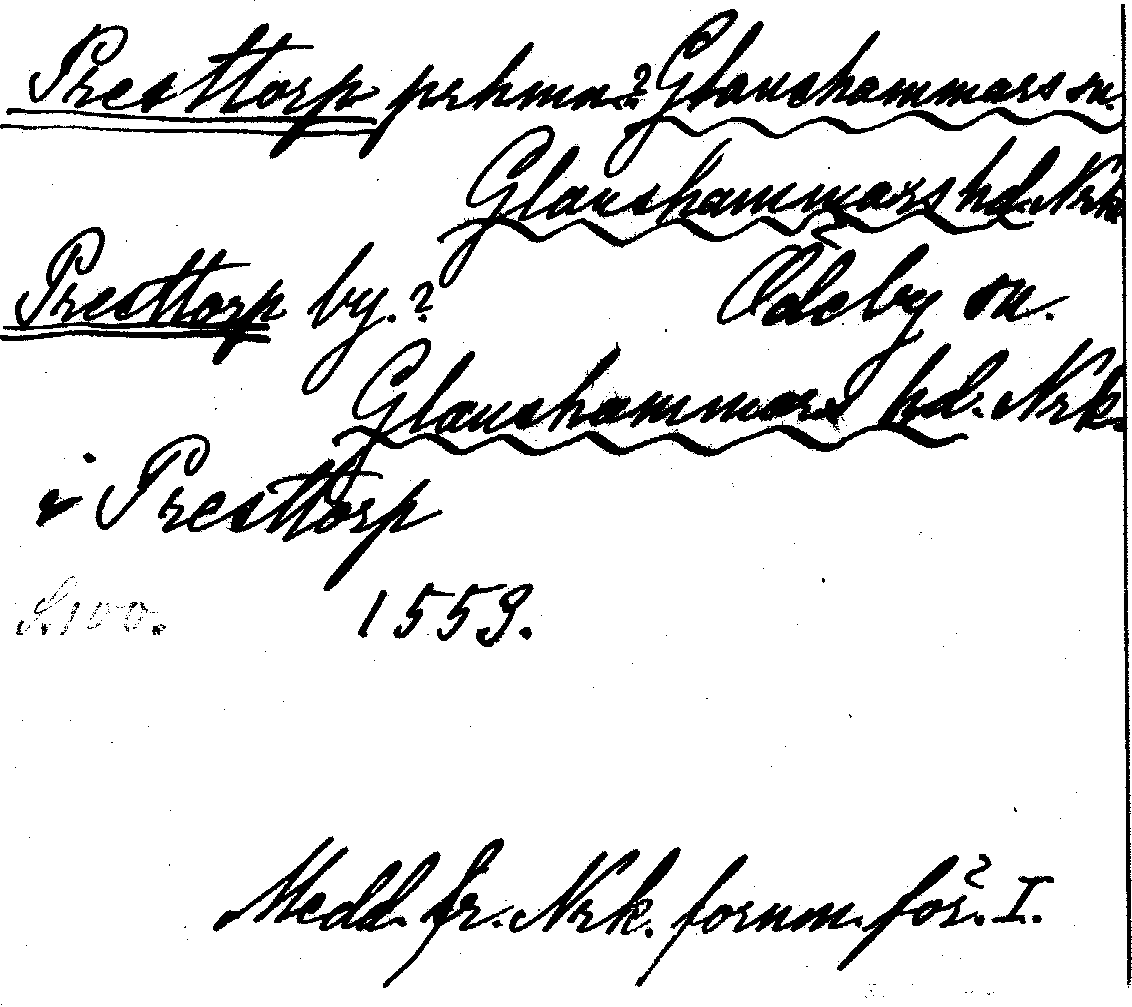 Presttorp prhmn.? Glanshammars sn.
Glanshammars hd. Nrk.
Presttorp by.? Ödeby sn.
Glanshammars hd. Nrk.
i Presttorp
S. 100. 1559.
Medd. fr. Nrk. fornm. för. I.